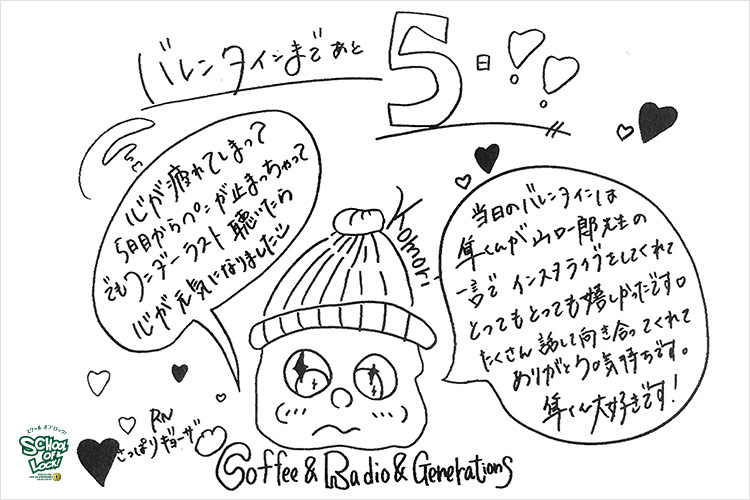 バレンタインまであと5日!!
心が疲れてしまって
5日目からペンが止まっちゃって
でもワンダーラスト聴いたら
心が元気になりました
Komori
当日のバレンタインは
隼くんが山口一郎先生の
一言でインスタライブをしてくれて
とってもとっても嬉しかったです。
たくさん話して向き合ってくれて
ありがとうの気持ちです。
隼くん大好きです!
RN
さっぱりギョーザ
Coffee & Radio & Generations
スクール オブ ロック!
SCHOOL
OF
LOCK!